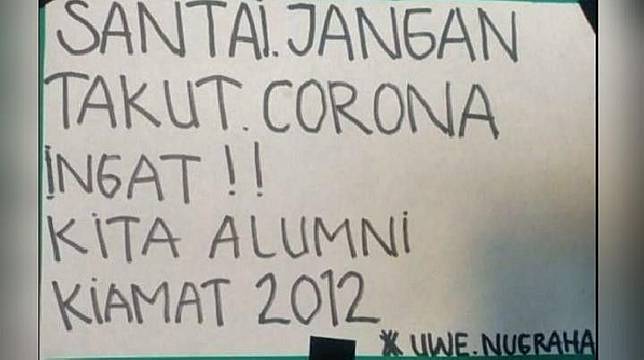 SANTAi.JANGAN
TAKUT.CORONA
iNGAT !!
KiTA ALUMNi
KiAMAT 2012
* UWE.NUGRAHA